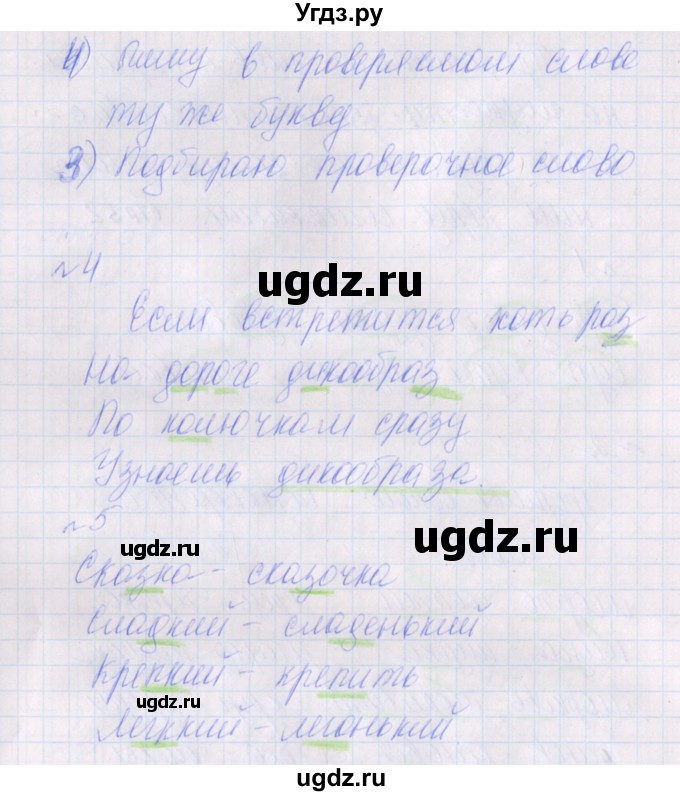 Угдз.ру
4) Пишу в проверяемом слове
ту же букву
3) Подбираю проверочное слово
№4
ugdz.ru
Если встретится хоть раз
На дороге дикообраз
По колючкам сразу
Узнаешь дикообраза.
№5
ugdz.ru
ugdz.ru
Сказка - сказочка
Сладкий - сладенький
Крепкий - крепить
ugdz.ru
Легкий - легонький
ugdz.ru